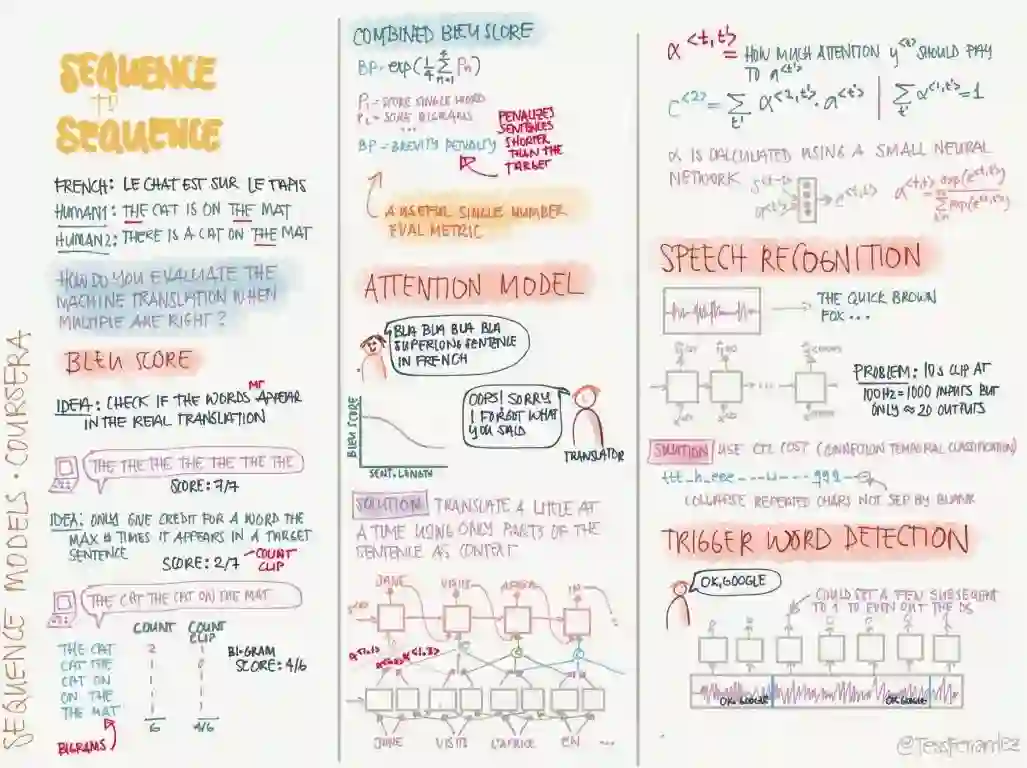 SEQUENCE MODELS · COURSERA
SEQUENCE
TO
SEQUENCE
FRENCH: LE CHAT EST SUR LE TAPIS
HUMAN1: THE CAT IS ON THE MAT
HUMAN2: THERE IS A CAT ON THE MAT
HOW DO YOU EVALUATE THE
MACHINE TRANSLATION WHEN
MULTIPLE ARE RIGHT?
BLEU SCORE
IDEA: CHECK IF THE MT WORDS APPEAR
IN THE REAL TRANSLATION
THE THE THE THE THE THE THE
SCORE: 7/7
IDEA: ONLY GIVE CREDIT FOR A WORD THE
MAX # TIMES IT APPEARS IN A TARGET
SENTENCE
SCORE: 2/7 COUNT
CLIP
THE CAT THE CAT ON THE MAT
COUNT COUNT
CLIP
THE CAT 2 1
CAT THE 1 0
CAT ON 1 1
ON THE 1 1
THE MAT 1 1
6 4/6
BI-GRAM
SCORE: 4/6
BIGRAMS
COMBINED BLEU SCORE
BP · exp(1/4 4∑n=1 Pn)
P1 = SCORE SINGLE WORD
P2 = SCORE BIGRAMS
...
BP = BREVITY PENALTY
PENALIZES
SENTENCES
SHORTER
THAN THE
TARGET
A USEFUL SINGLE NUMBER
EVAL METRIC
ATTENTION MODEL
BLA BLA BLA BLA
SUPERLONG SENTENCE
IN FRENCH
OOPS! SORRY
I FORGOT WHAT
YOU SAID
TRANSLATOR
BLEU SCORE
SENT. LENGTH
SOLUTION TRANSLATE A LITTLE AT
A TIME USING ONLY PARTS OF THE
SENTENCE AS CONTEXT
JANE VISITS AFRICA IN
JANE VISITE L'AFRIQUE EN ...
α<t,t'> = HOW MUCH ATTENTION y<t> SHOULD PAY
TO a<t'>
c<2> = ∑t' α<2,t'> · a<t'> | ∑t' α<1,t'> = 1
α IS CALCULATED USING A SMALL NEURAL
NETWORK
s<t-1>
a<t'> e<t,t'>
SPEECH RECOGNITION
THE QUICK BROWN
FOX ...
PROBLEM: 10s CLIP AT
100Hz = 1000 INPUTS BUT
ONLY ≈ 20 OUTPUTS
SOLUTION USE CTC COST (CONNECTION TEMPORAL CLASSIFICATION)
COLLAPSE REPEATED CHARS NOT SEP BY BLANK
TRIGGER WORD DETECTION
OK, GOOGLE
COULD SET A FEW SUBSEQUENT
TO 1 TO EVEN OUT THE 0s
OK, GOOGLE OK, GOOGLE
@TessFerrandez